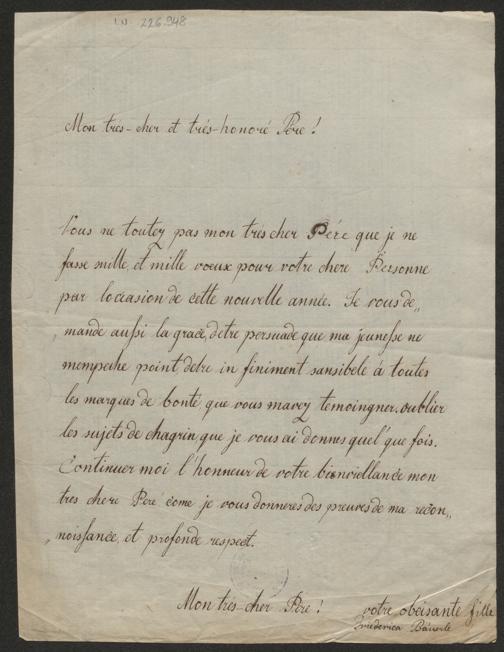 I.N. 226.948
Mon trés-cher et trés-honoré Pére!
Vous ne toutez pas mon tres cher Pére que je ne
fasse mille, et mille voeux pour votre chere Personne
par loccasion de cette nouvelle année. Je vous de„
mande aussi la grace, detre persuade que ma jeunesse ne
mempeche point detre in finiment sansibele á toutes
les marques de bonté que vous mavez temoingner. oublier
les sujets de chagrin que je vous ai donnes quel'que fois.
Continuer moi l'honneur de votre bienveillance mon
tres chere Pere come je vous donneres des preuves de ma recon„
„noissance, et profonde respect.
Mon tres-cher Pére! votre obeisante fille
Friederica Bäuerle